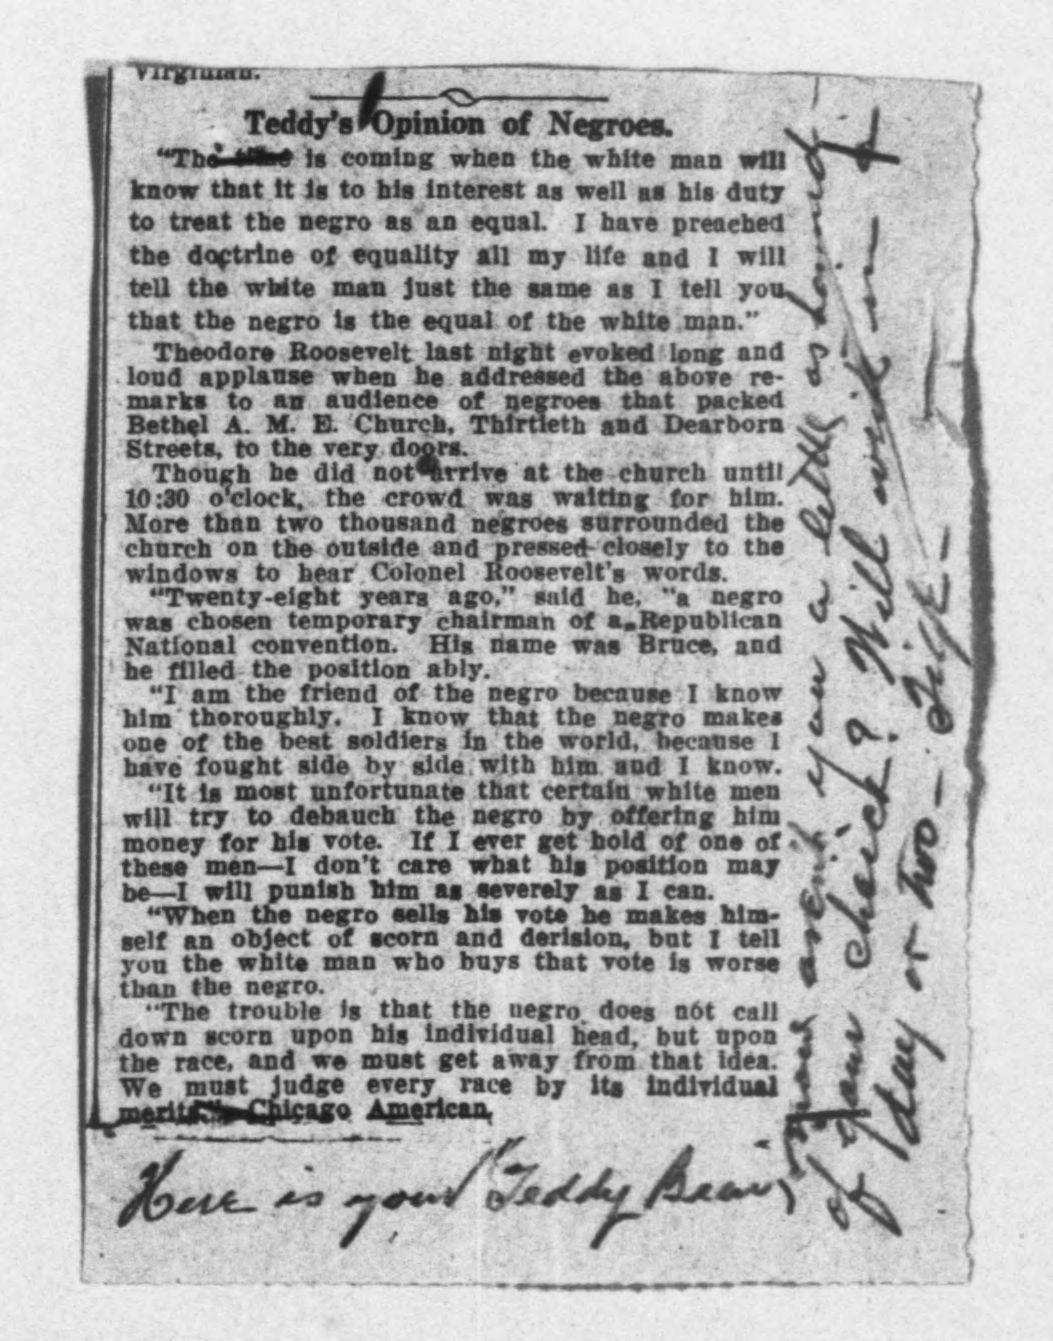 Virginian.
Teddy's Opinion of Negroes.
"The time is coming when the white man will
know that it is to his interest as well as his duty
to treat the negro as an equal. I have preached
the doctrine of equality all my life and I will
tell the white man just the same as I tell you
that the negro is the equal of the white man."
Theodore Roosevelt last night evoked long and
loud applause when he addressed the above re-
marks to an audience of negroes that packed
Bethel A. M. E. Church, Thirtieth and Dearborn
Streets, to the very doors.
Though he did not arrive at the church until
10:30 o'clock, the crowd was waiting for him.
More than two thousand negroes surrounded the
church on the outside and pressed closely to the
windows to hear Colonel Roosevelt's words.
"Twenty-eight years ago," said he, "a negro
was chosen temporary chairman of a Republican
National convention. His name was Bruce, and
he filled the position ably.
"I am the friend of the negro because I know
him thoroughly. I know that the negro makes
one of the best soldiers in the world, because I
have fought side by side with him and I know.
"It is most unfortunate that certain white men
will try to debauch the negro by offering him
money for his vote. If I ever get hold of one of
these men—I don't care what his position may
be—I will punish him as severely as I can.
"When the negro sells his vote he makes him-
self an object of scorn and derision, but I tell
you the white man who buys that vote is worse
than the negro.
"The trouble is that the negro does not call
down scorn upon his individual head, but upon
the race, and we must get away from that idea.
We must judge every race by its individual
merits."—Chicago American.
Here is your "Teddy Bear,"
you a letter as
of your chair? Will write in a
day or two —